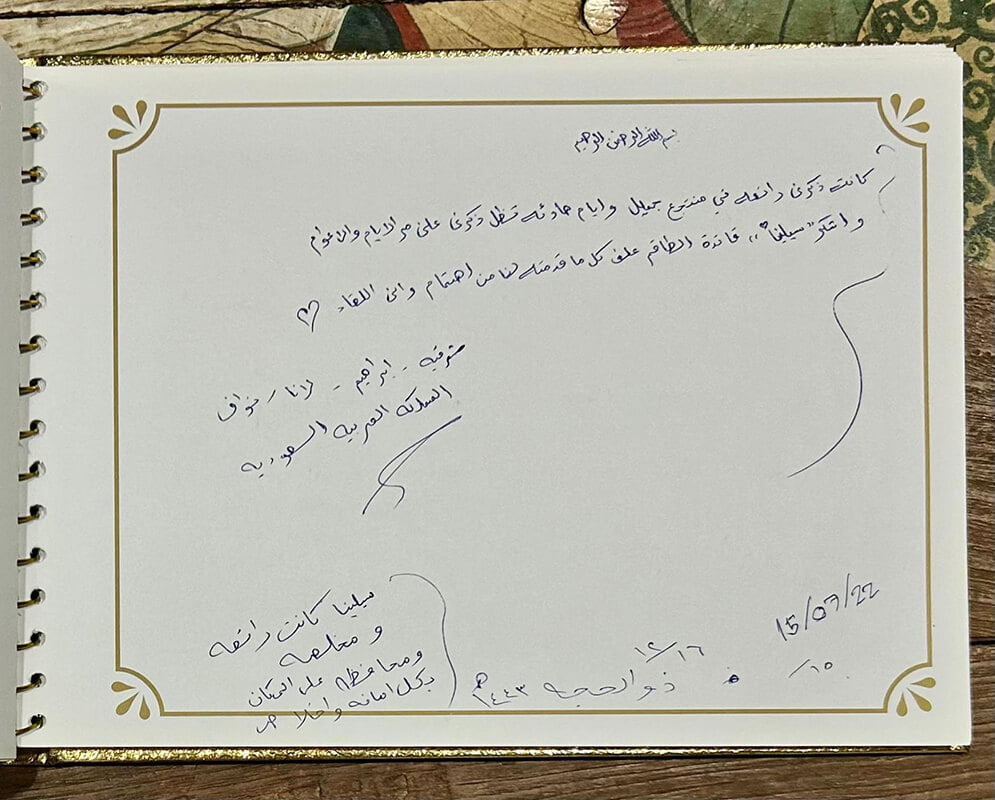 بسم الله الرحمن الرحيم
كانت ذكرى رائعه في منتجع جميل وايام هادئه تظل ذكرى على مر الايام والاعوام
واشكر "سيلينا" قائدة الطاقم على كل ما قدمته لنا من اهتمام والى اللقاء
شرقيه - ابراهيم - لانا - نواف
المملكه العربيه السعوديه
سيلينا كانت رائعه
و مخلصه
ومحافظه على المكان
بكل امانه واخلاص
15/07/22
١٢/١٦
ذو الحجه ١٤٤٣ هـ